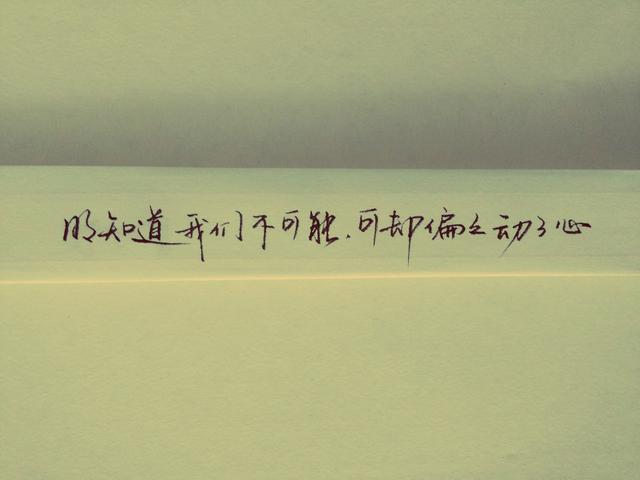 明知道我们不可能.可却偏々动了心